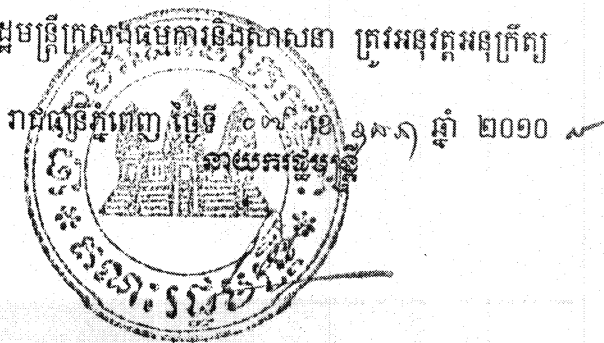 ដ្ឋមន្ត្រីក្រសួងធម្មការនិងសាសនា ត្រូវអនុវត្តអនុក្រឹត្យ
រាជធានីភ្នំពេញ ថ្ងៃទី ខែ ឆ្នាំ ២០១០
នាយករដ្ឋមន្ត្រី